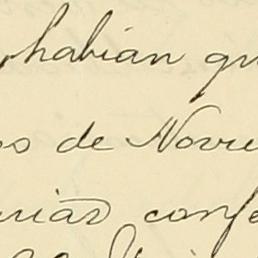 habian qu
os de Novie
rias confe